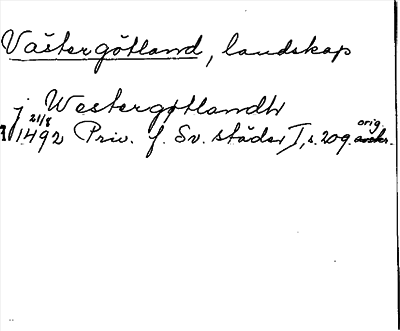 Västergötland, landskap
j Westergøtlandh
21/8 1492 Priv. f. Sv. städer I, s. 209. orig.